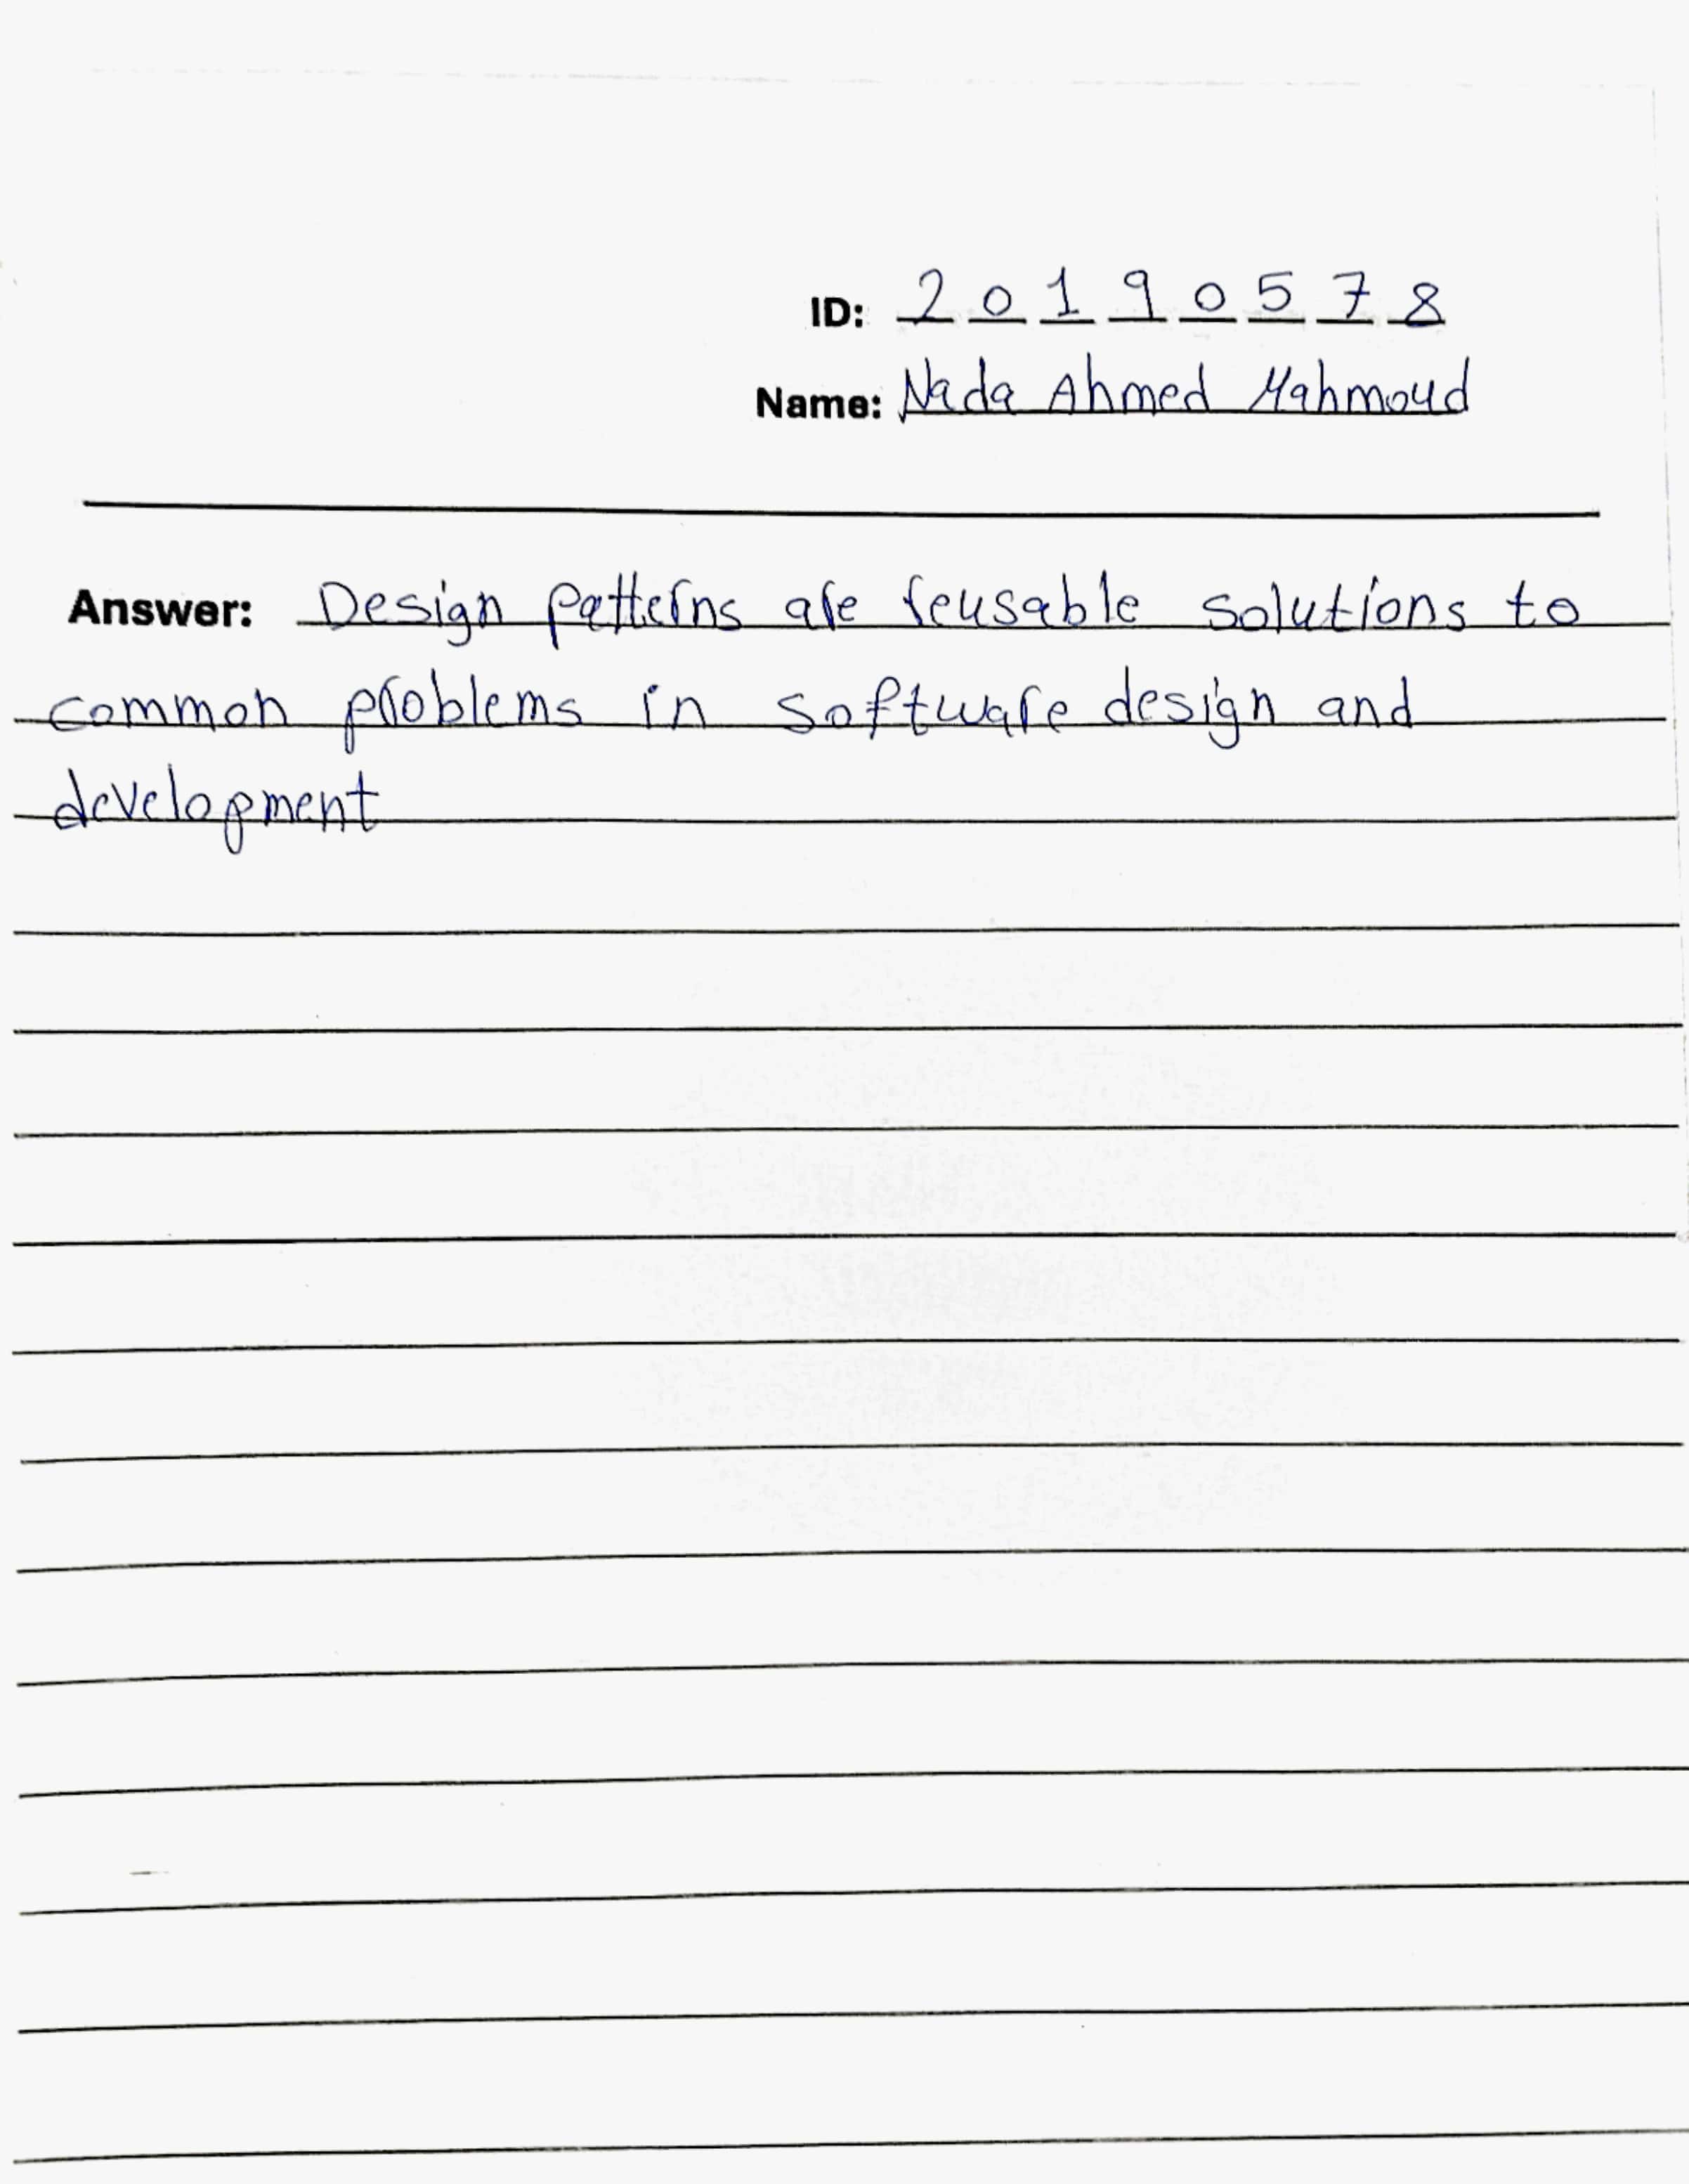 ID: 2 0 1 9 0 5 7 8
Name: Nada Ahmed Mahmoud
Answer: Design patterns are reusable solutions to
common problems in software design and
development